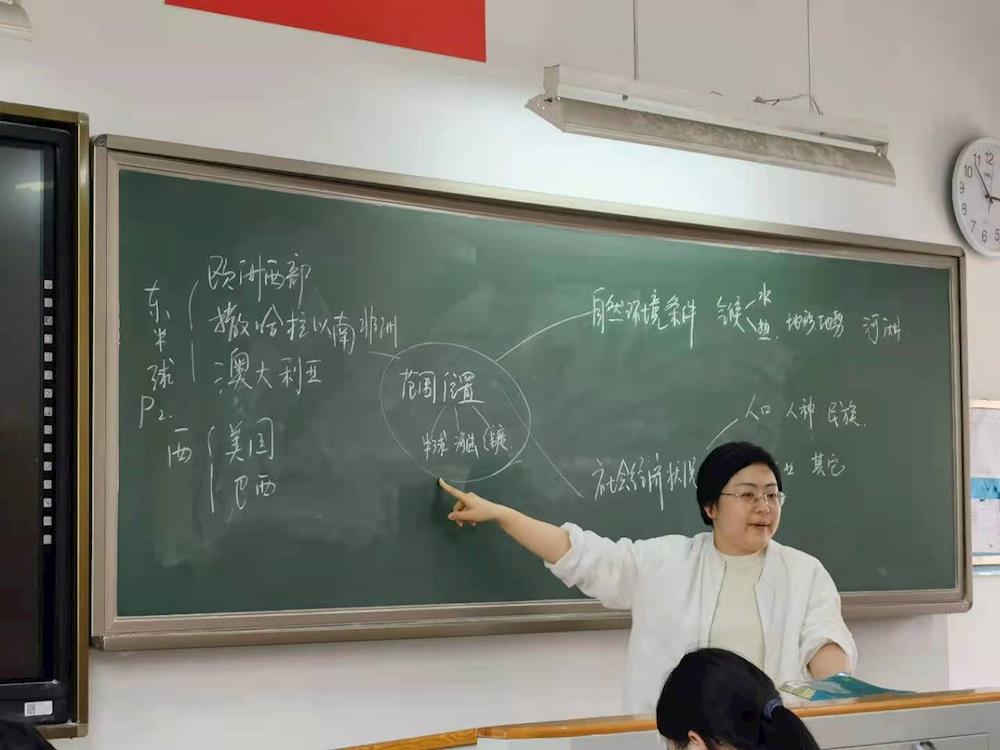 东半球
P2.
欧洲西部
撒哈拉以南非洲
澳大利亚
西
美国
巴西
范围位置
半球 海陆
自然环境条件 气候 水 热. 地形地势 河湖.
社会经济状况
人口 人种 民族.
业 其它
10 11 12
9
8
7 6 5